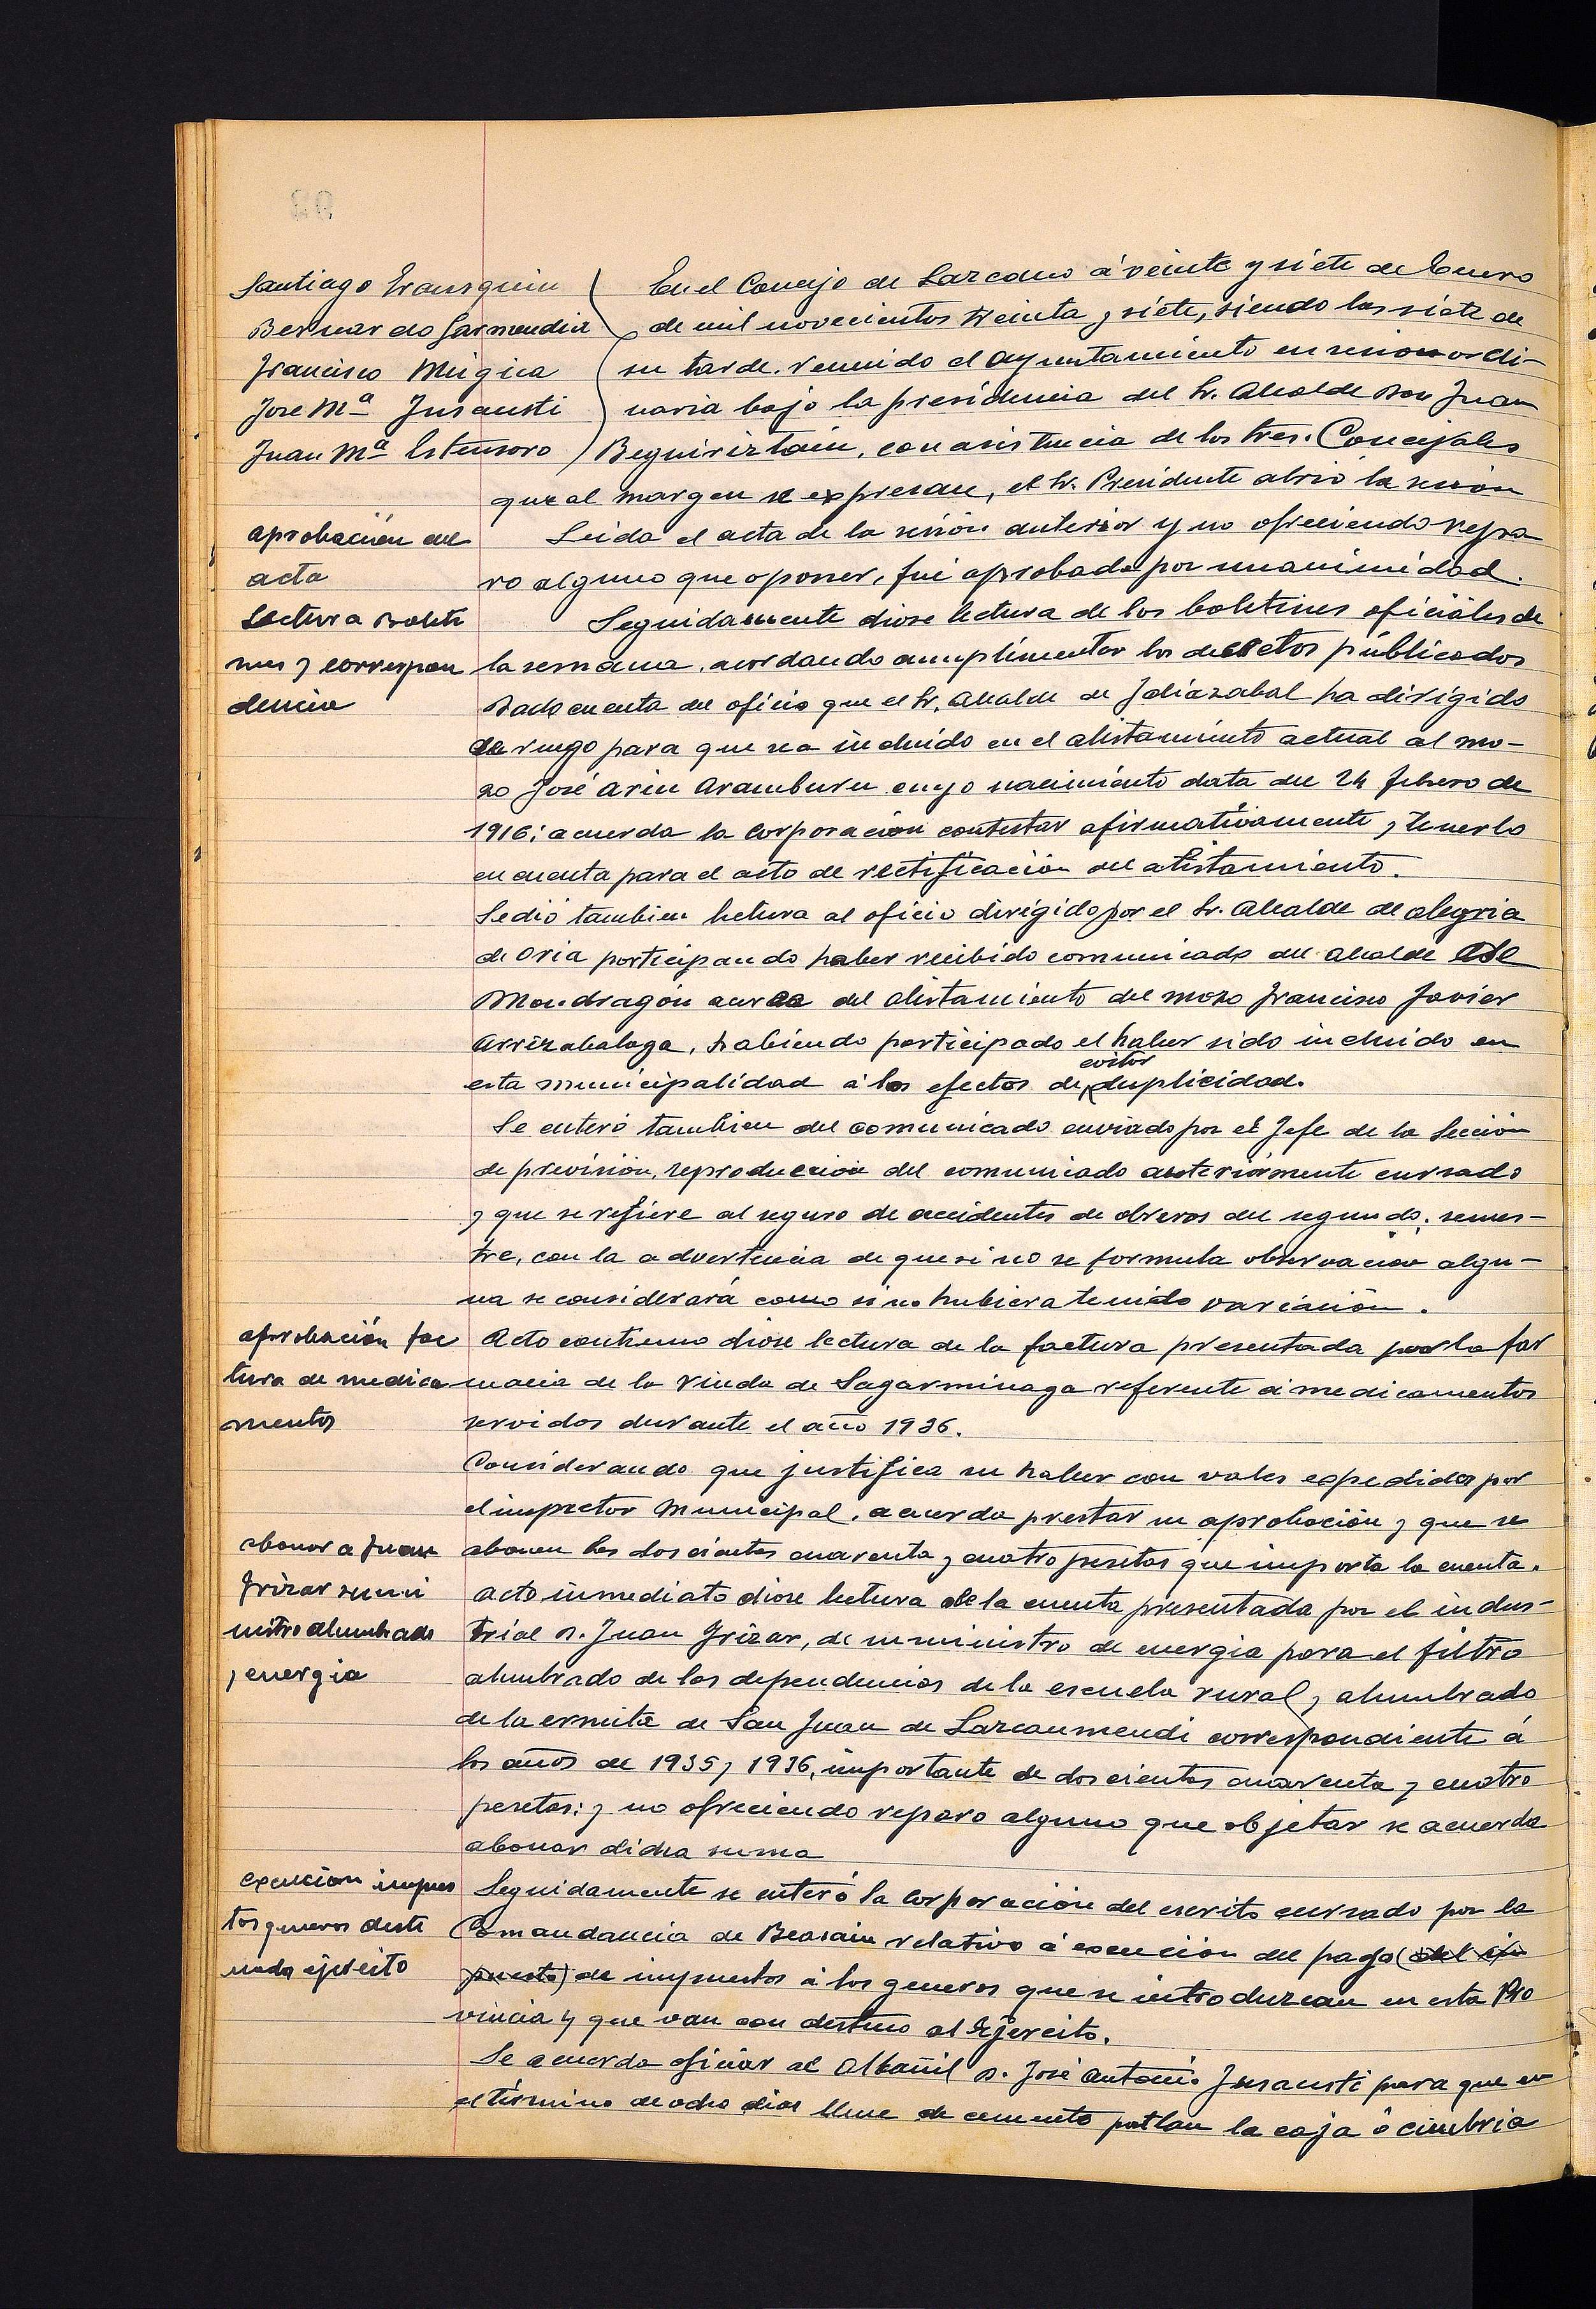 Santiago
Bernardo Garmendia
Francisco Múgica
Jose Mª Insausti
Juan Mª Estensoro
En el Concejo de Lazcano á veinte y siete de Enero
de mil novecientos treinta y siete, siendo las siete de
su tarde. reunido el Ayuntamiento en sesion ordi-
naria bajo la presidencia del Sr. Alcalde Don Juan
Beguiriztain, con asistencia de los tres. Concejales
que al margen se expresan, el Sr. Presidente abrió la sesión
aprobación del
acta
Leida el acta de la sesión anterior y no ofreciendo repa
ro alguno que oponer, fué aprobada por unanimidad.
Lectura Boleti
nes y correspon
dencia
Seguidamente diose lectura de los boletines oficiales de
la semana, acordando cumplimentar los decretos públicados
Dado cuenta del oficio que el Sr. Alcalde de Idiazabal ha dirigido
de ruego para que sea incluido en el alistamiento actual al mo-
zo José Arin Aramburu cuyo nacimiento data del 24 febrero de
1916; acuerda la Corporación contestar afirmativamente y tenerlo
en cuenta para el acto de rectificación del alistamiento.
Se dió tambien lectura al oficio dirigido por el Sr. Alcalde de Alegria
de Oria participando haber recibido comunicado del Alcalde de
Mondragón acerca del alistamiento del mozo Francisco Javier
Arrizabalaga, habiendo participado el haber sido incluido en
esta municipalidad á los efectos de evitar duplicidad.
Se enteró tambien del comunicado enviado por el Jefe de la Sección
de previsión, reproducción del comunicado anteriormente cursado
y que se refiere al seguro de accidentes de obreros del segundo semes-
tre, con la advertencia de que si no se formula observacion algu-
na se considerará como si no hubiera tenido variación.
aprobación fac
tura de medica
mentos
Acto contínuo diose lectura de la factura presentada por la far
macia de la Viuda de Sagarminaga referente á medicamentos
servidos durante el año 1936.
Considerando que justifica su haber con vales expedidos por
el inspector Municipal, acuerda prestar su aprobación y que se
abonen las doscientas cuarenta y cuatro pesetas que importa la cuenta.
abonar a Juan
Irizar sumi
nistro alumbrado
y energia
Acto inmediato diose lectura de la cuenta presentada por el indus-
trial D. Juan Irizar, de suministro de energia para el filtro
alumbrado de las dependencias de la escuela rural y alumbrado
de la ermita de San Juan de Lazcaumendi correspondiente á
los años de 1935 y 1936, importante de doscientas cuarenta y cuatro
pesetas; y no ofreciendo reparo alguno que objetar se acuerda
abonar dicha suma
exencion impues
tos generos desti
nados ejército
Seguidamente se enteró la Corporación del escrito cursado por la
Comandancia de Beasain relativo á exención del pago (del im
puesto) de impuestos á los generos que se introduzcan en esta Pro
vincia y que van con destino al Ejercito.
Se acuerda oficiar al Albañil D. José Antonio Insausti para que en
el término de ocho dias llene de cemento patlan la caja ó cimbria